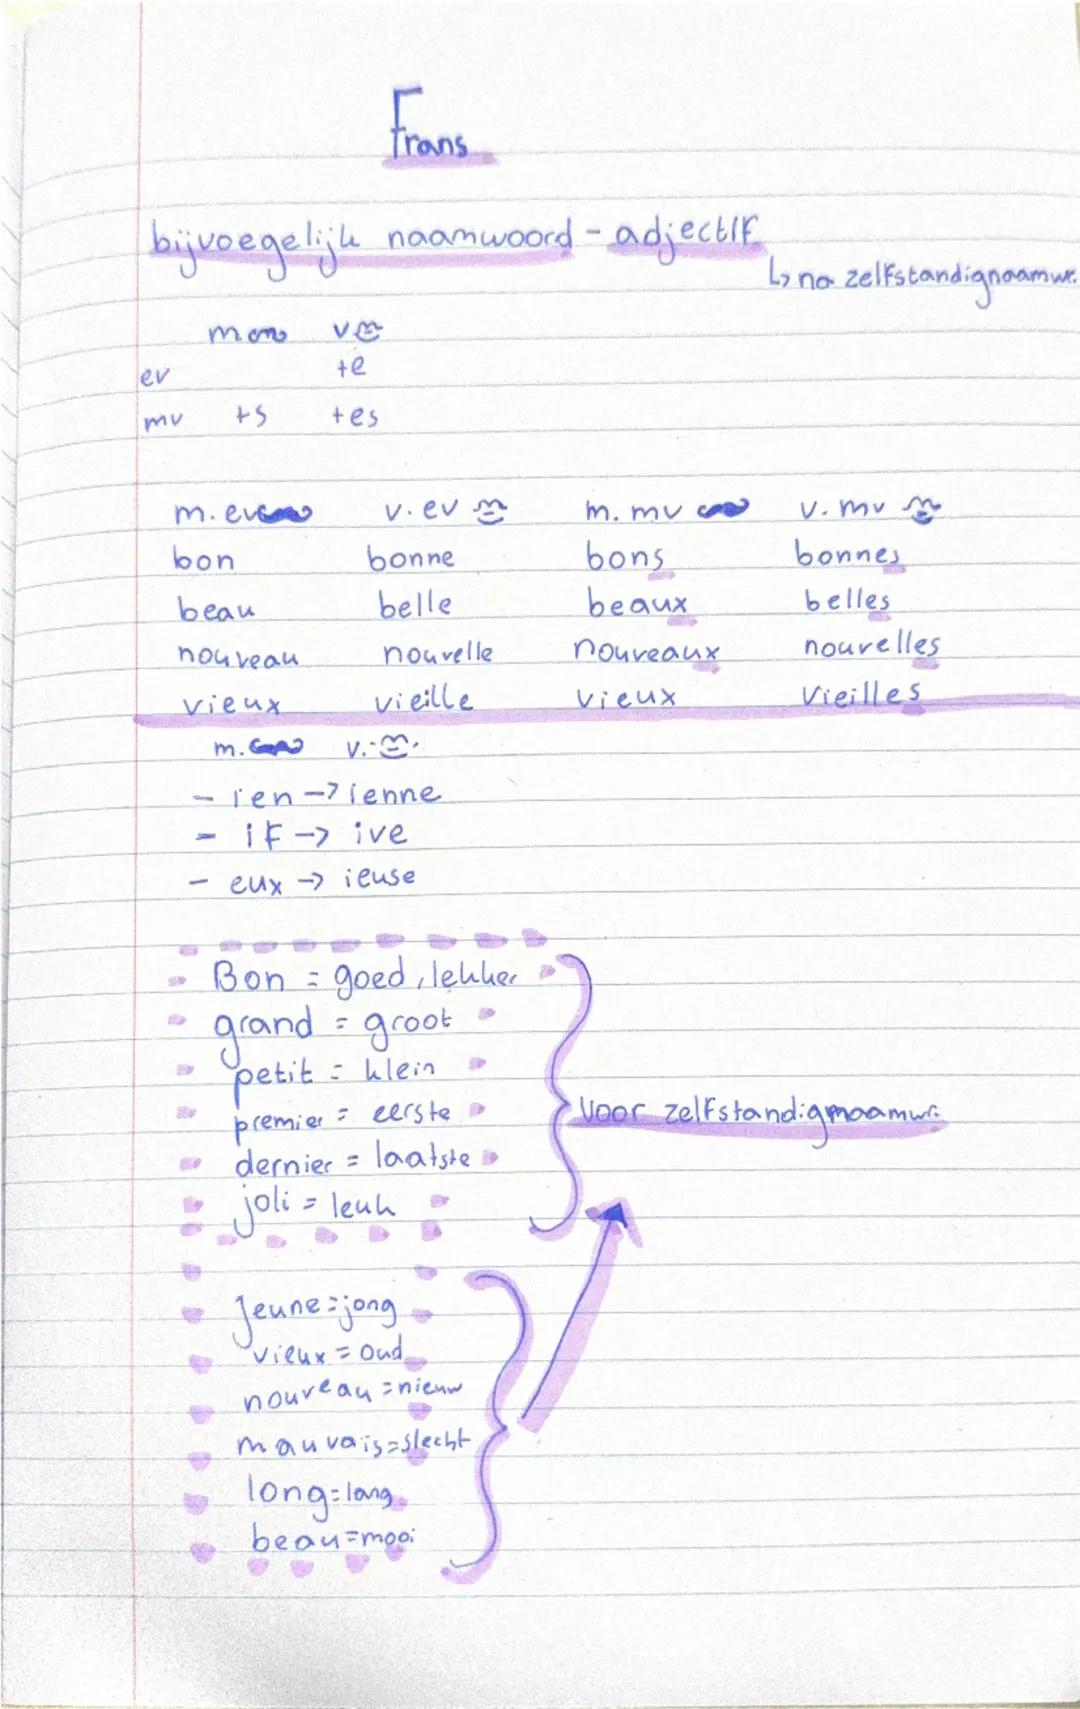 Frans
bijvoegelijk naamwoord - adjectif
↳ na zelfstandignaamw.
m. v
ev +e
mv +s +es
m. ev v. ev m. mv v. mv
bon bonne bons bonnes
beau belle beaux belles
nouveau nouvelle nouveaux nouvelles
vieux vieille vieux vieilles
m. v.
- ien → ienne
- if → ive
- eux → ieuse
Bon = goed, lekker
grand = groot
petit = klein
premier = eerste
Voor zelfstandignaamw.
dernier = laatste
joli = leuk
Jeune = jong
vieux = oud
nouveau = nieuw
mauvais = slecht
long = lang
beau = mooi